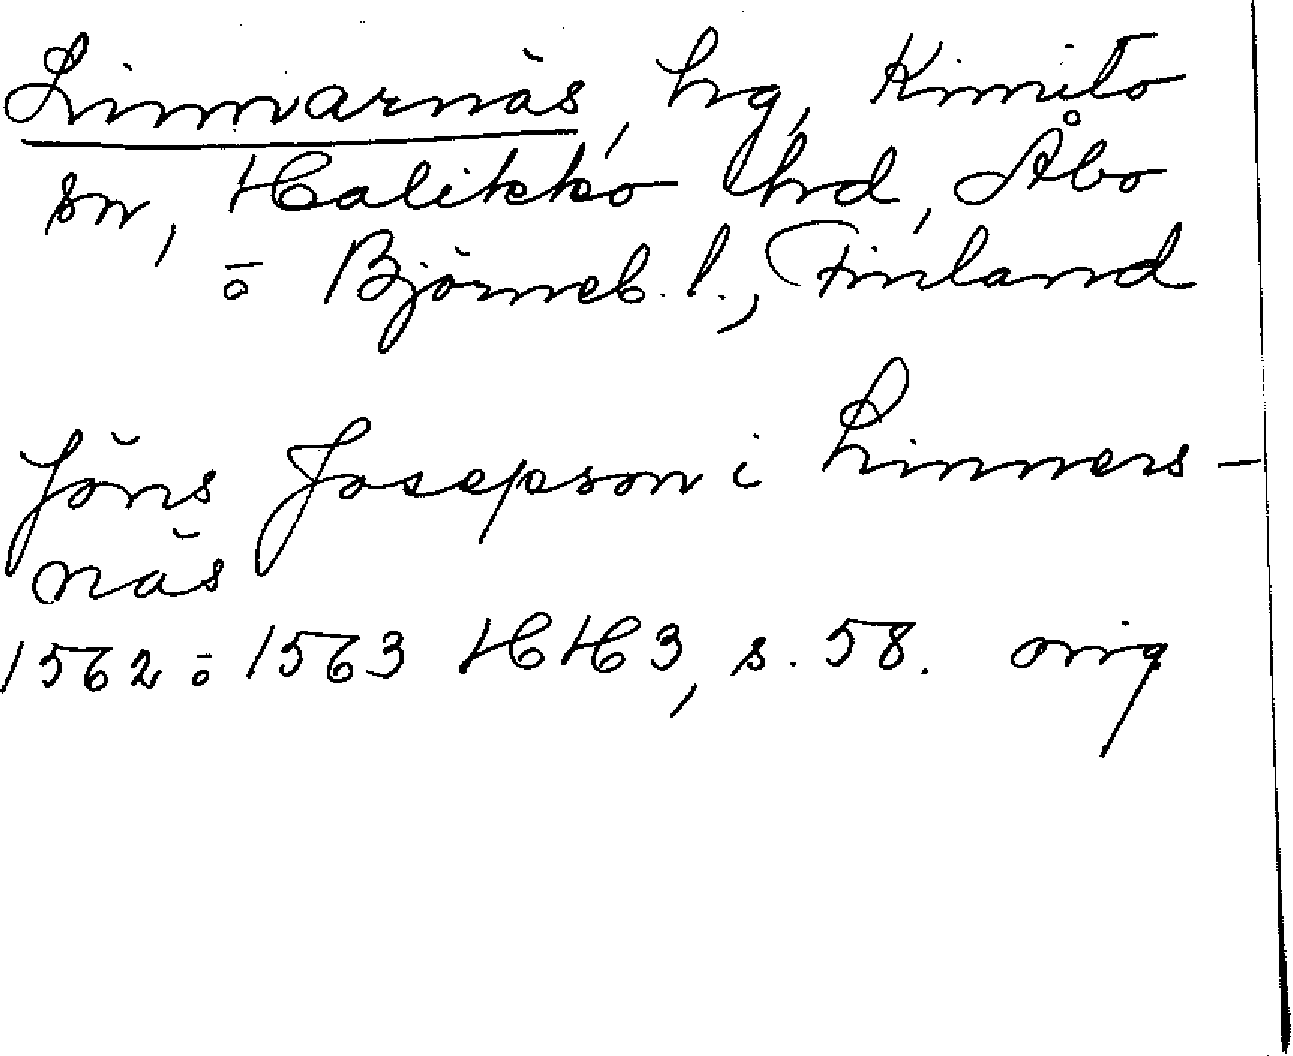 Linnarnäs, hg, Kimito
sn, Halikko hd, Åbo
o Björneb. l., Finland
Jöns Josepson i Linners-
näs
1562 o 1563 HH3, s. 58. orig